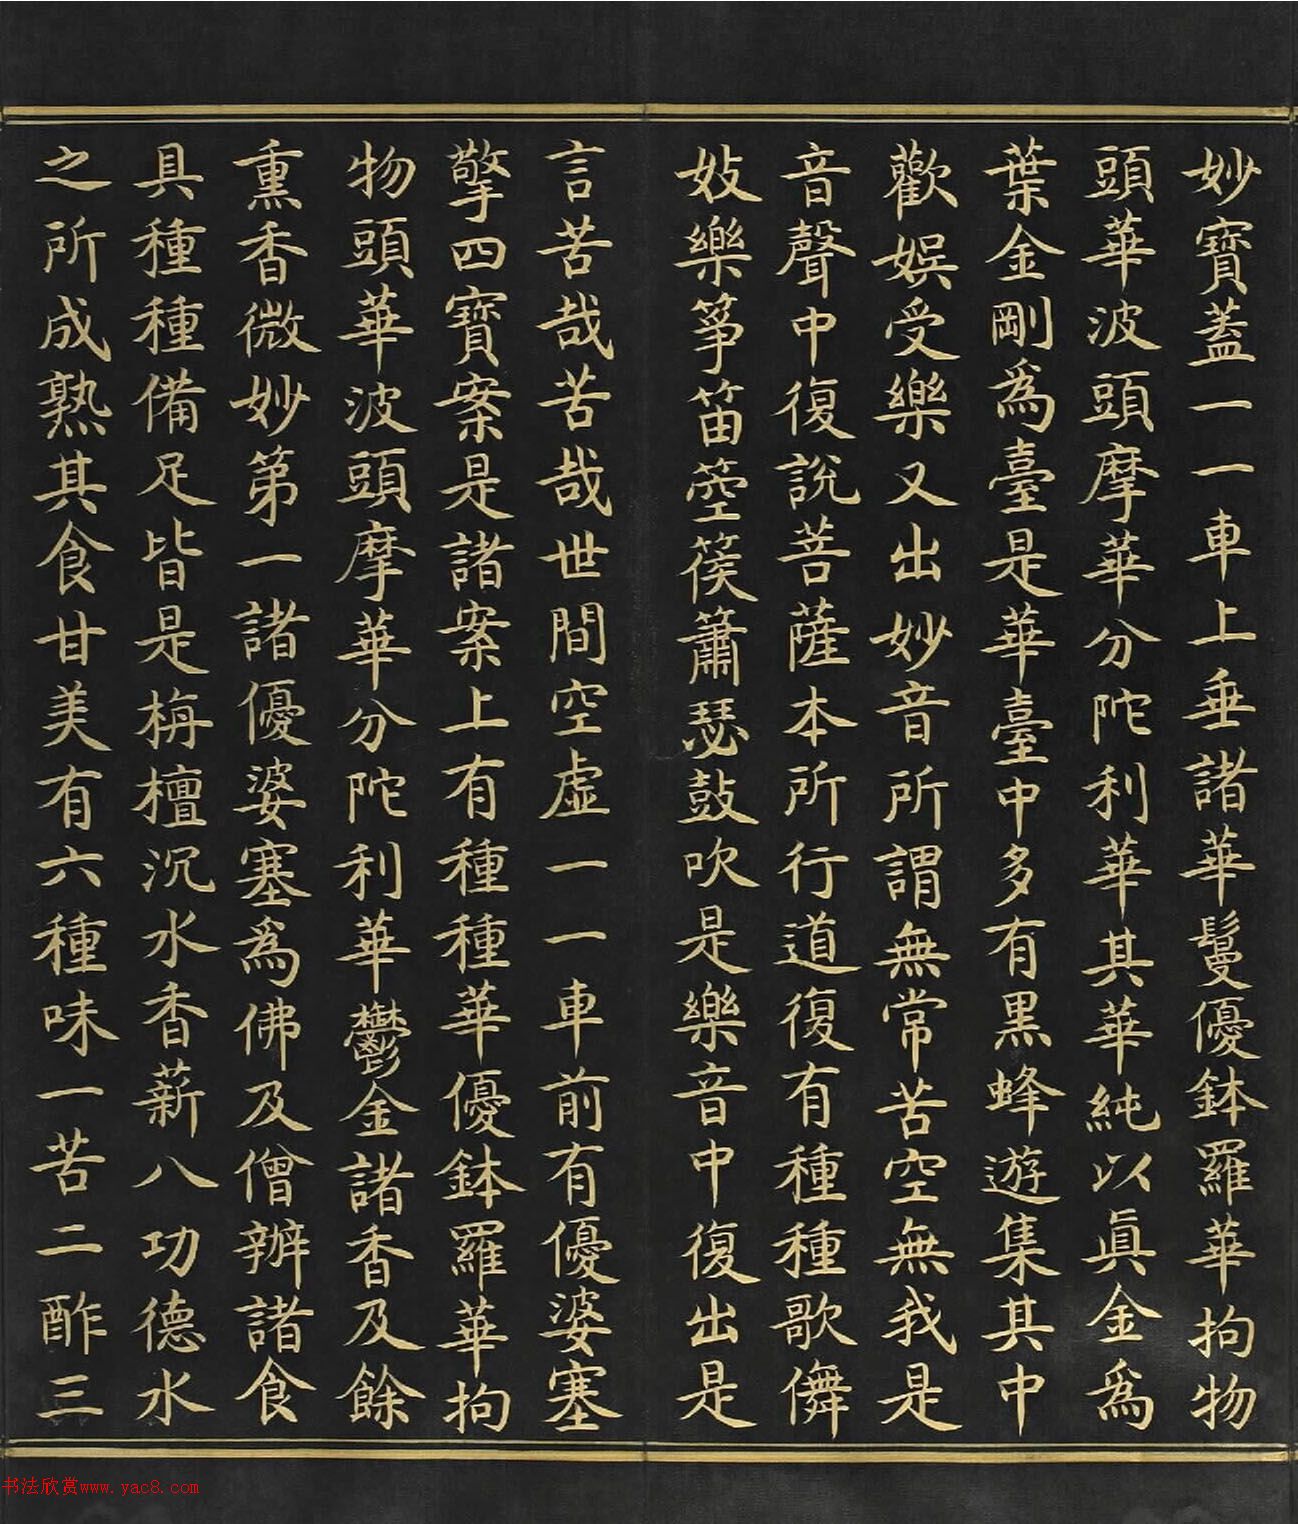 妙寶蓋一一車上垂諸華鬘優鉢羅華拘物
頭華波頭摩華分陀利華其華純以真金為
葉金剛為臺是華臺中多有黑蜂遊集其中
歡娛受樂又出妙音所謂無常苦空無我是
音聲中復說菩薩本所行道復有種種歌儛
妓樂箏笛箜篌簫瑟鼓吹是樂音中復出是
言苦哉苦哉世間空虛一一車前有優婆塞
擎四寶案是諸案上有種種華優鉢羅華拘
物頭華波頭摩華分陀利華鬱金諸香及餘
熏香微妙第一諸優婆塞為佛及僧辦諸食
具種種備足皆是栴檀沉水香薪八功德水
之所成熟其食甘美有六種味一苦二酢三
书法欣赏www.yac8.com